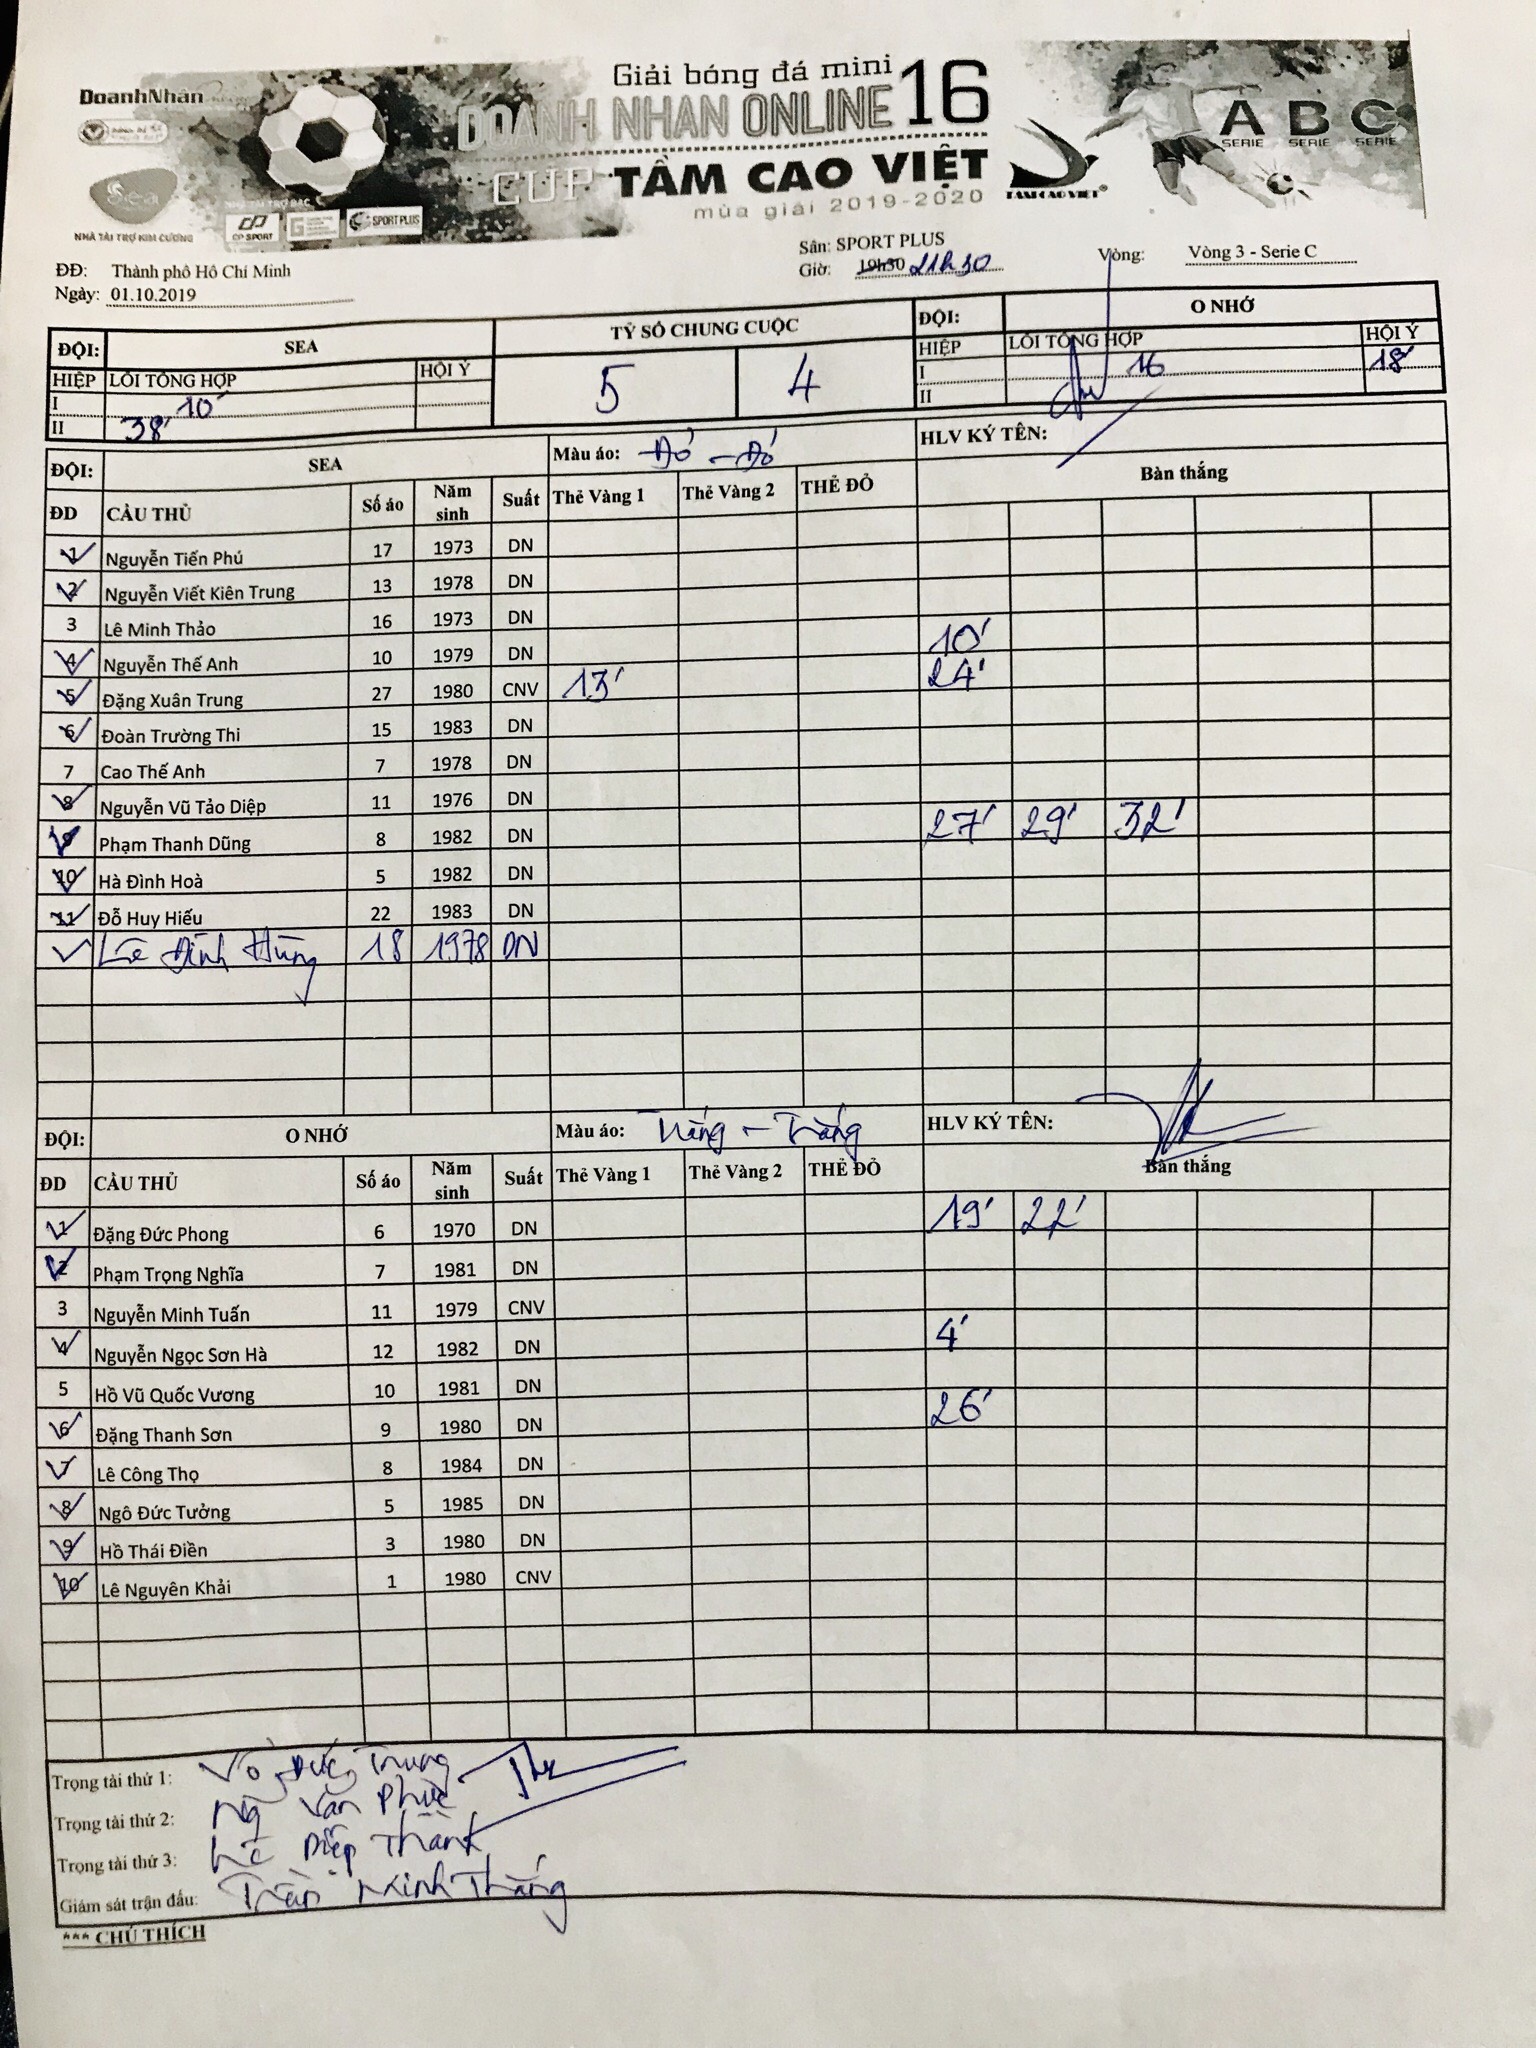 Giải bóng đá mini
DoanhNhân
DOANH NHAN ONLINE 16
A B C
SERIE SERIE SERIE
CUP TẦM CAO VIỆT
mùa giải 2019-2020
TAMCAOVIET®
Sea
NHÀ TÀI TRỢ BẠC
CP SPORT
SPORT PLUS
NHÀ TÀI TRỢ KIM CƯƠNG
Sân: SPORT PLUS
ĐĐ: Thành phô Hô Chí Minh
Giờ: 19h30 21h30 Vòng: Vòng 3 - Serie C
Ngày: 01.10.2019
ĐỘI: SEA TỶ SỐ CHUNG CUỘC ĐỘI: O NHỚ
HIỆP LỖI TỔNG HỢP HỘI Ý 5 4 HIỆP LỖI TỔNG HỢP HỘI Ý
I 10' I 16 18'
II 38' II
ĐỘI: SEA Màu áo: Đỏ - Đỏ HLV KÝ TÊN:
ĐD CẦU THỦ Số áo Năm sinh Suất Thẻ Vàng 1 Thẻ Vàng 2 THẺ ĐỎ Bàn thắng
1 Nguyễn Tiến Phú 17 1973 DN
2 Nguyễn Viết Kiên Trung 13 1978 DN
3 Lê Minh Thảo 16 1973 DN
4 Nguyễn Thế Anh 10 1979 DN 10'
5 Đặng Xuân Trung 27 1980 CNV 13' 24'
6 Đoàn Trường Thi 15 1983 DN
7 Cao Thế Anh 7 1978 DN
8 Nguyễn Vũ Tảo Diệp 11 1976 DN
9 Phạm Thanh Dũng 8 1982 DN 27' 29' 32'
10 Hà Đình Hoà 5 1982 DN
11 Đỗ Huy Hiếu 22 1983 DN
Lê Đình Hùng 18 1978 DN
ĐỘI: O NHỚ Màu áo: Trắng - Trắng HLV KÝ TÊN:
ĐD CẦU THỦ Số áo Năm sinh Suất Thẻ Vàng 1 Thẻ Vàng 2 THẺ ĐỎ Bàn thắng
1 Đặng Đức Phong 6 1970 DN 19' 22'
2 Phạm Trọng Nghĩa 7 1981 DN
3 Nguyễn Minh Tuấn 11 1979 CNV
4 Nguyễn Ngọc Sơn Hà 12 1982 DN 4'
5 Hồ Vũ Quốc Vương 10 1981 DN
6 Đặng Thanh Sơn 9 1980 DN 26'
7 Lê Công Thọ 8 1984 DN
8 Ngô Đức Tưởng 5 1985 DN
9 Hồ Thái Điền 3 1980 DN
10 Lê Nguyên Khải 1 1980 CNV
Trọng tài thứ 1: Võ Đức Trung
Trọng tài thứ 2: Ng Văn Phúc
Trọng tài thứ 3: Lê Diệp Thành
Giám sát trận đấu: Trần Minh Thắng
*** CHÚ THÍCH